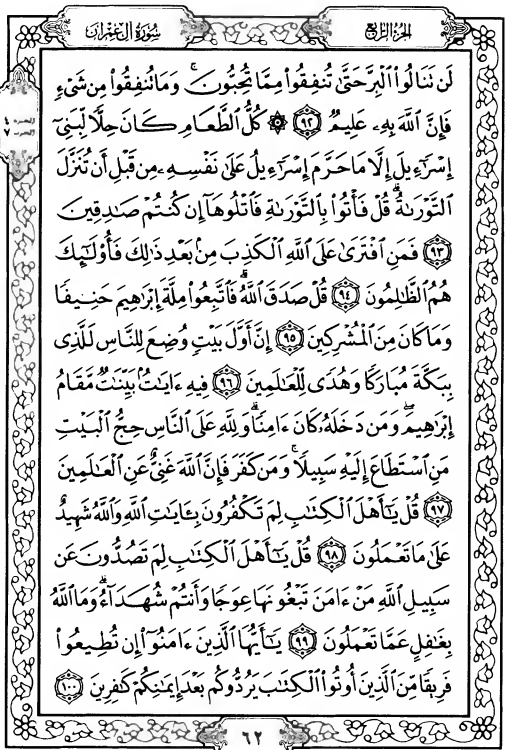 سُورَةُ آلِ عِمْرَان
الجُزءُ الرَّابِعُ
لَن تَنَالُوا۟ ٱلْبِرَّ حَتَّىٰ تُنفِقُوا۟ مِمَّا تُحِبُّونَ ۚ وَمَا تُنفِقُوا۟ مِن شَىْءٍ
فَإِنَّ ٱللَّهَ بِهِۦ عَلِيمٌ ﴿٩٢﴾ ۞ كُلُّ ٱلطَّعَامِ كَانَ حِلًّا لِّبَنِىٓ
إِسْرَٰٓءِيلَ إِلَّا مَا حَرَّمَ إِسْرَٰٓءِيلُ عَلَىٰ نَفْسِهِۦ مِن قَبْلِ أَن تُنَزَّلَ
ٱلتَّوْرَىٰةُ ۗ قُلْ فَأْتُوا۟ بِٱلتَّوْرَىٰةِ فَٱتْلُوهَآ إِن كُنتُمْ صَٰدِقِينَ
﴿٩٣﴾ فَمَنِ ٱفْتَرَىٰ عَلَى ٱللَّهِ ٱلْكَذِبَ مِنۢ بَعْدِ ذَٰلِكَ فَأُو۟لَٰٓئِكَ
هُمُ ٱلظَّٰلِمُونَ ﴿٩٤﴾ قُلْ صَدَقَ ٱللَّهُ ۗ فَٱتَّبِعُوا۟ مِلَّةَ إِبْرَٰهِيمَ حَنِيفًا
وَمَا كَانَ مِنَ ٱلْمُشْرِكِينَ ﴿٩٥﴾ إِنَّ أَوَّلَ بَيْتٍ وُضِعَ لِلنَّاسِ لَلَّذِى
بِبَكَّةَ مُبَارَكًا وَهُدًى لِّلْعَٰلَمِينَ ﴿٩٦﴾ فِيهِ ءَايَٰتٌۢ بَيِّنَٰتٌ مَّقَامُ
إِبْرَٰهِيمَ ۖ وَمَن دَخَلَهُۥ كَانَ ءَامِنًا ۗ وَلِلَّهِ عَلَى ٱلنَّاسِ حِجُّ ٱلْبَيْتِ
مَنِ ٱسْتَطَاعَ إِلَيْهِ سَبِيلًا ۚ وَمَن كَفَرَ فَإِنَّ ٱللَّهَ غَنِىٌّ عَنِ ٱلْعَٰلَمِينَ
﴿٩٧﴾ قُلْ يَٰٓأَهْلَ ٱلْكِتَٰبِ لِمَ تَكْفُرُونَ بِـَٔايَٰتِ ٱللَّهِ وَٱللَّهُ شَهِيدٌ
عَلَىٰ مَا تَعْمَلُونَ ﴿٩٨﴾ قُلْ يَٰٓأَهْلَ ٱلْكِتَٰبِ لِمَ تَصُدُّونَ عَن
سَبِيلِ ٱللَّهِ مَنْ ءَامَنَ تَبْغُونَهَا عِوَجًا وَأَنتُمْ شُهَدَآءُ ۗ وَمَا ٱللَّهُ
بِغَٰفِلٍ عَمَّا تَعْمَلُونَ ﴿٩٩﴾ يَٰٓأَيُّهَا ٱلَّذِينَ ءَامَنُوٓا۟ إِن تُطِيعُوا۟
فَرِيقًا مِّنَ ٱلَّذِينَ أُوتُوا۟ ٱلْكِتَٰبَ يَرُدُّوكُم بَعْدَ إِيمَٰنِكُمْ كَٰفِرِينَ ﴿١٠٠﴾
٦٢